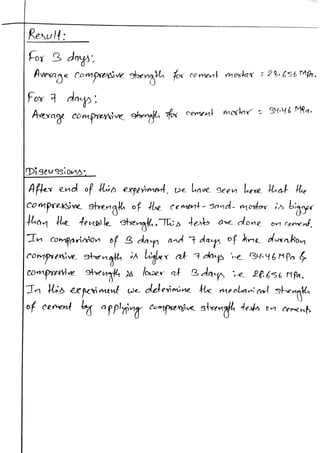 Result:
For 3 days:
Average compressive strength for cement mortar = 28.656 MPa.
For 7 days:
Average compressive strength for cement mortar = 34.46 MPa.
Discussions:
After end of this experiment, we have seen here that the
compressive strength of the cement-sand-mortar is bigger
than the tensile strength. This tests are done on cement.
In comparision of 3 days and 7 days of time duration
compressive strength is higher at 7 days i.e 34.46 MPa &
compressive strength is lower at 3 days i.e 28.656 MPa.
In this experiment we deterimine the mechanical strength
of cement by applying compressive strength tests on cement.